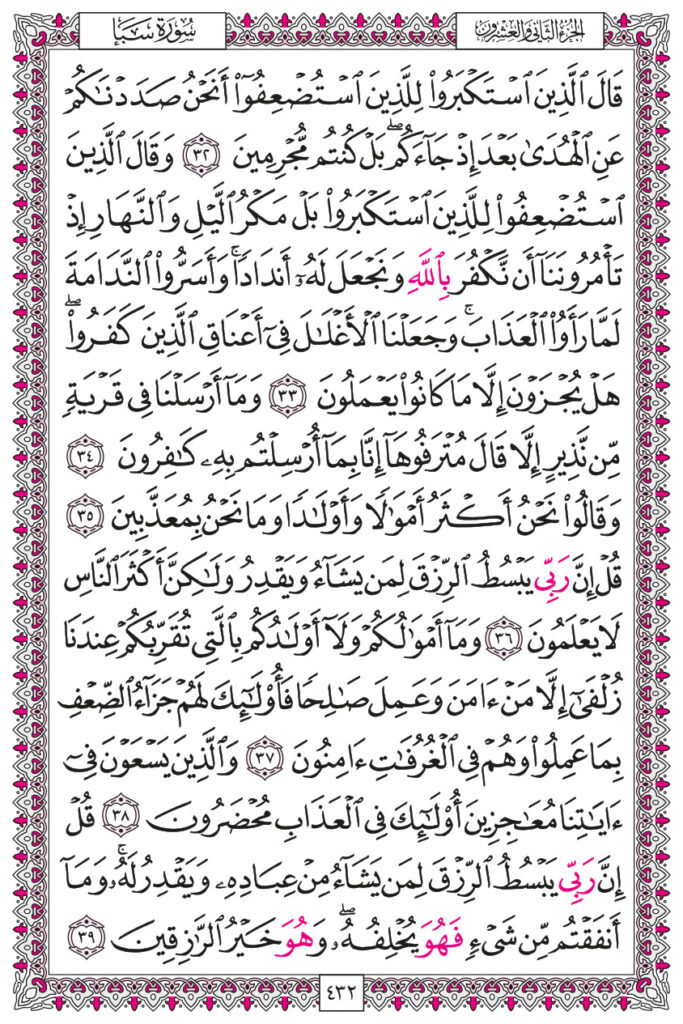 الجزء الثاني والعشرون
سورة سبإ
قَالَ ٱلَّذِينَ ٱسۡتَكۡبَرُواْ لِلَّذِينَ ٱسۡتُضۡعِفُوٓاْ أَنَحۡنُ صَدَدۡنَٰكُمۡ
عَنِ ٱلۡهُدَىٰ بَعۡدَ إِذۡ جَآءَكُمۖ بَلۡ كُنتُم مُّجۡرِمِينَ ٣٢ وَقَالَ ٱلَّذِينَ
ٱسۡتُضۡعِفُواْ لِلَّذِينَ ٱسۡتَكۡبَرُواْ بَلۡ مَكۡرُ ٱلَّيۡلِ وَٱلنَّهَارِ إِذۡ
تَأۡمُرُونَنَآ أَن نَّكۡفُرَ بِٱللَّهِ وَنَجۡعَلَ لَهُۥٓ أَندَادٗاۚ وَأَسَرُّواْ ٱلنَّدَامَةَ
لَمَّا رَأَوُاْ ٱلۡعَذَابَۚ وَجَعَلۡنَا ٱلۡأَغۡلَٰلَ فِيٓ أَعۡنَاقِ ٱلَّذِينَ كَفَرُواْۖ
هَلۡ يُجۡزَوۡنَ إِلَّا مَا كَانُواْ يَعۡمَلُونَ ٣٣ وَمَآ أَرۡسَلۡنَا فِي قَرۡيَةٖ
مِّن نَّذِيرٍ إِلَّا قَالَ مُتۡرَفُوهَآ إِنَّا بِمَآ أُرۡسِلۡتُم بِهِۦ كَٰفِرُونَ ٣٤
وَقَالُواْ نَحۡنُ أَكۡثَرُ أَمۡوَٰلٗا وَأَوۡلَٰدٗا وَمَا نَحۡنُ بِمُعَذَّبِينَ ٣٥
قُلۡ إِنَّ رَبِّي يَبۡسُطُ ٱلرِّزۡقَ لِمَن يَشَآءُ وَيَقۡدِرُ وَلَٰكِنَّ أَكۡثَرَ ٱلنَّاسِ
لَا يَعۡلَمُونَ ٣٦ وَمَآ أَمۡوَٰلُكُمۡ وَلَآ أَوۡلَٰدُكُم بِٱلَّتِي تُقَرِّبُكُمۡ عِندَنَا
زُلۡفَىٰٓ إِلَّا مَنۡ ءَامَنَ وَعَمِلَ صَٰلِحٗا فَأُوْلَٰٓئِكَ لَهُمۡ جَزَآءُ ٱلضِّعۡفِ
بِمَا عَمِلُواْ وَهُمۡ فِي ٱلۡغُرُفَٰتِ ءَامِنُونَ ٣٧ وَٱلَّذِينَ يَسۡعَوۡنَ فِيٓ
ءَايَٰتِنَا مُعَٰجِزِينَ أُوْلَٰٓئِكَ فِي ٱلۡعَذَابِ مُحۡضَرُونَ ٣٨ قُلۡ
إِنَّ رَبِّي يَبۡسُطُ ٱلرِّزۡقَ لِمَن يَشَآءُ مِنۡ عِبَادِهِۦ وَيَقۡدِرُ لَهُۥۚ وَمَآ
أَنفَقۡتُم مِّن شَيۡءٖ فَهُوَ يُخۡلِفُهُۥۖ وَهُوَ خَيۡرُ ٱلرَّٰزِقِينَ ٣٩
٤٣٢